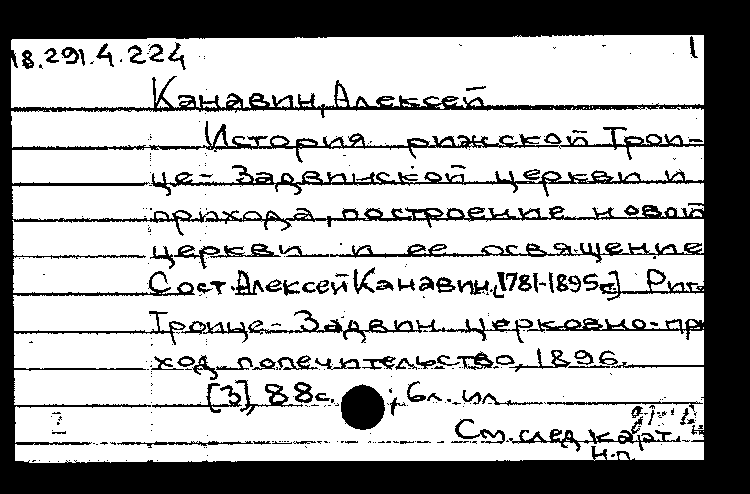 18.291.4.224 1
Канавин, Алексей
История рижской Трои-
це-Задвинской церкви и
прихода, построение новой
церкви и ее освящение
Сост. Алексей Канавин, [1781-1895г.] Рига
Троице-Задвин. церковно-пр
ход. попечительство, 1896.
[3], 88с. ; 6л. ил.
2
См. след. карт.
н.п.